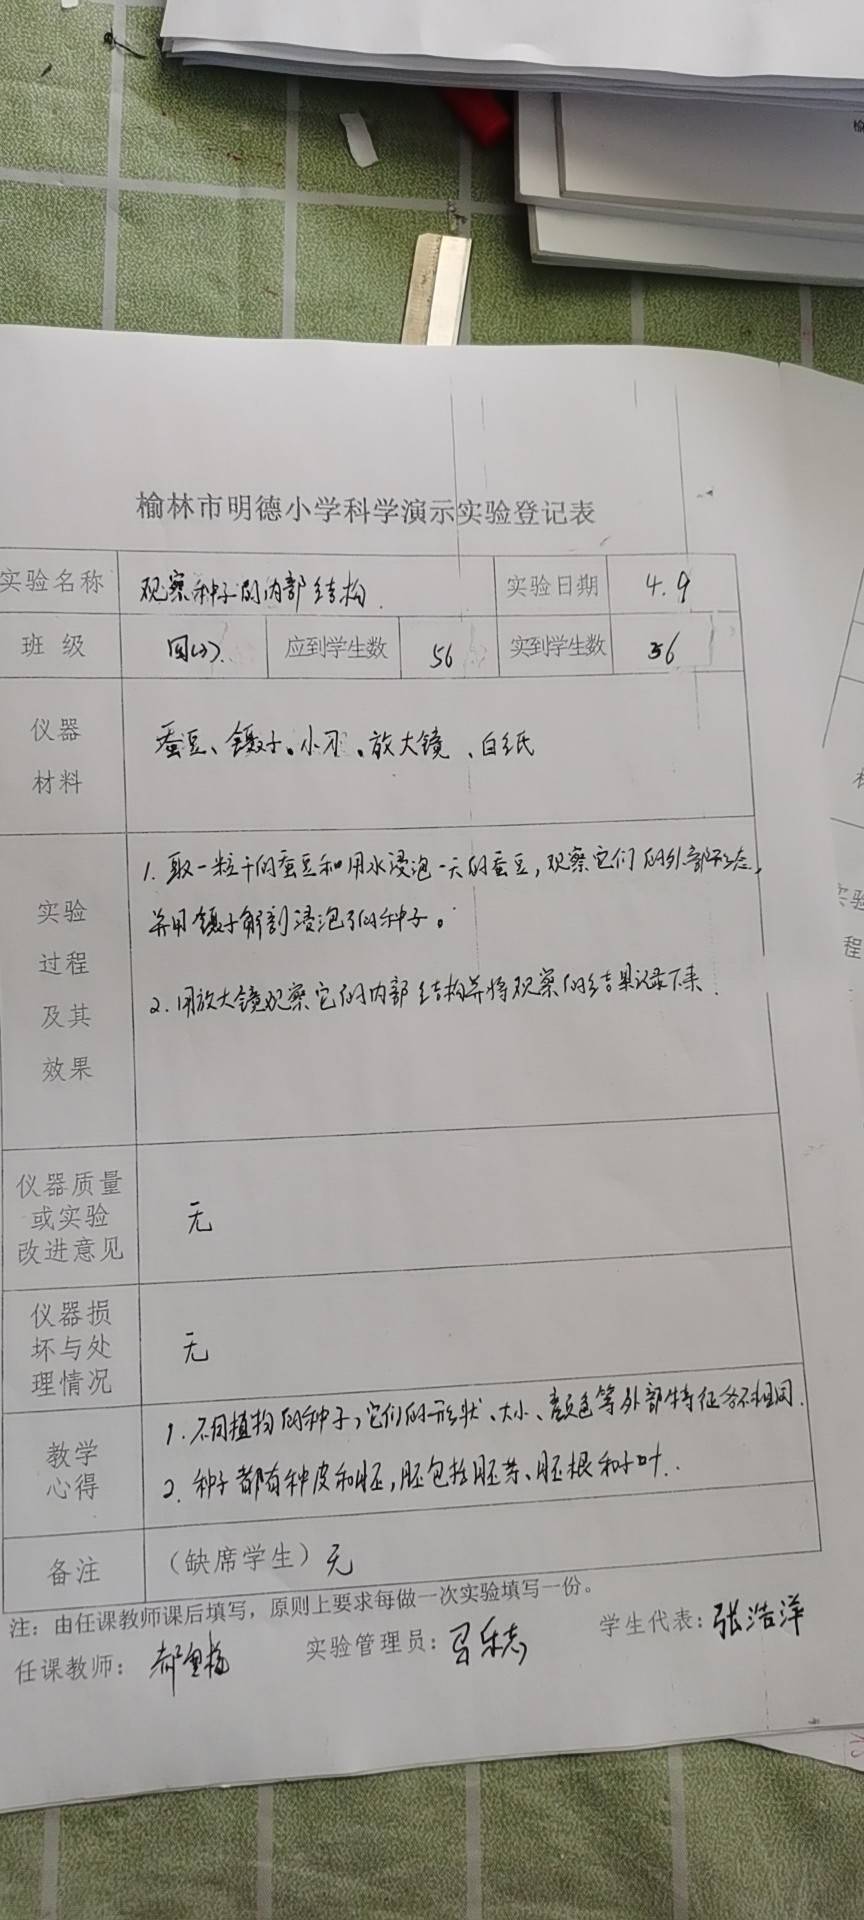 榆林市明德小学科学演示实验登记表
实验名称 观察种子的内部结构. 实验日期 4.9
班 级 四(3). 应到学生数 56 实到学生数 56
仪器
材料
蚕豆、镊子、小刀、放大镜、白纸
实验
过程
及其
效果
1. 取一粒干的蚕豆和用水浸泡一天的蚕豆,观察它们的外部形态,
并用镊子解剖浸泡了的种子。
2. 用放大镜观察它的内部结构并将观察的结果记录下来.
仪器质量
或实验
改进意见
无
仪器损
坏与处
理情况
无
教学
心得
1. 不同植物的种子,它们的形状、大小、颜色等外部特征各不相同.
2. 种子都有种皮和胚,胚包括胚芽、胚根和子叶.
备注 (缺席学生) 无
注: 由任课教师课后填写,原则上要求每做一次实验填写一份。
任课教师: 实验管理员: 学生代表: 张浩洋
榆
实验
程